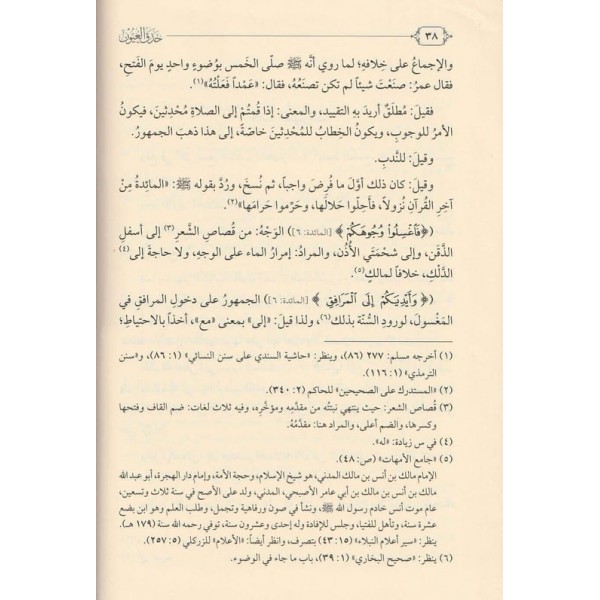 ٣٨
حدق العيون
والإجماعُ على خِلافِه؛ لما روي أنَّه ﷺ صلّى الخَمس بوُضوءٍ واحدٍ يومَ الفَتحِ،
فقال عمرُ: صنَعْتَ شيئاً لم تكن تصنَعُهُ، فقال: «عَمْداً فَعَلْتُهُ»(١).
فقيلَ: مُطلَقٌ أريدَ بهِ التقييد، والمعنى: إذا قُمتُمْ إلى الصلاةِ مُحْدِثينَ، فيكونُ
الأمرُ للوجوبِ، ويكونُ الخِطابُ للمُحْدِثينَ خاصّةً، إلى هذا ذهبَ الجمهورُ.
وقيلَ: للنَّدبِ.
وقيلَ: كان ذلك أوَّلَ ما فُرضَ واجباً، ثم نُسخَ، ورُدَّ بقولهِ ﷺ: «المائِدةُ مِنْ
آخِرِ القُرآنِ نُزولاً، فأَحِلُّوا حَلالَها، وحَرِّموا حَرامَها»(٢).
(﴿فَاغْسِلُوا وُجُوهَكُمْ﴾ [المائدة: ٦]) الوَجْهُ: من قُصاصِ الشَّعرِ(٣) إلى أسفلِ
الذَّقَنِ، وإلى شَحْمَتَي الأُذُن، والمرادُ: إمرارُ الماء على الوجهِ، ولا حاجةَ إلى(٤)
الدَّلْكِ، خلافاً لمالكٍ(٥).
(﴿وَأَيْدِيَكُمْ إِلَى الْمَرَافِقِ﴾ [المائدة: ٦]) الجمهورُ على دخولِ المرافقِ في
المَغْسولِ، لورودِ السُّنّة بذلك(٦)، ولذا قيلَ: «إلى» بمعنى «مع»، أخذاً بالاحتياطِ؛
(١) أخرجه مسلم: ٢٧٧ (٨٦)، وينظر: «حاشية السندي على سنن النسائي» (١: ٨٦)، و«سنن
الترمذي» (١: ١١٦).
(٢) «المستدرك على الصحيحين» للحاكم (٢: ٣٤٠).
(٣) قُصاص الشعر: حيث ينتهي نبتُه من مقدَّمِه ومؤخَّرِه، وفيه ثلاث لغات: ضم القاف وفتحها
وكسرها، والضم أعلى، والمراد هنا: مقدَّمُهُ.
(٤) في س زيادة: «له».
(٥) «جامع الأمهات» (ص: ٤٨).
الإمام مالك بن أنس بن مالك المدني، هو شيخ الإسلام، وحجة الأمة، وإمام دار الهجرة، أبو عبد الله
مالك بن أنس بن مالك بن أبي عامر الأصبحي، المدني، ولد على الأصح في سنة ثلاث وتسعين،
عام موت أنس خادم رسول الله ﷺ، ونشأ في صون ورفاهية وتجمل، وطلب العلم وهو ابن بضع
عشرة سنة، وتأهل للفتيا، وجلس للإفادة وله إحدى وعشرون سنة، توفي رحمه الله سنة (١٧٩ هـ).
ينظر: «سير أعلام النبلاء» (١٥: ٤٣) بتصرف، وانظر أيضاً: «الأعلام» للزركلي (٥: ٢٥٧).
(٦) ينظر: «صحيح البخاري» (١: ٣٩)، باب ما جاء في الوضوء.